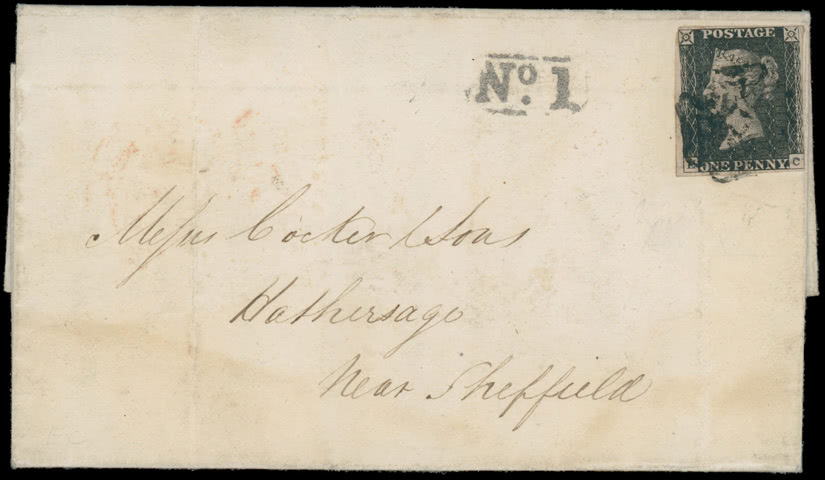 No. 1
POSTAGE
E C
ONE PENNY
Messrs Cocker & Sons
Hathersage
Near Sheffield